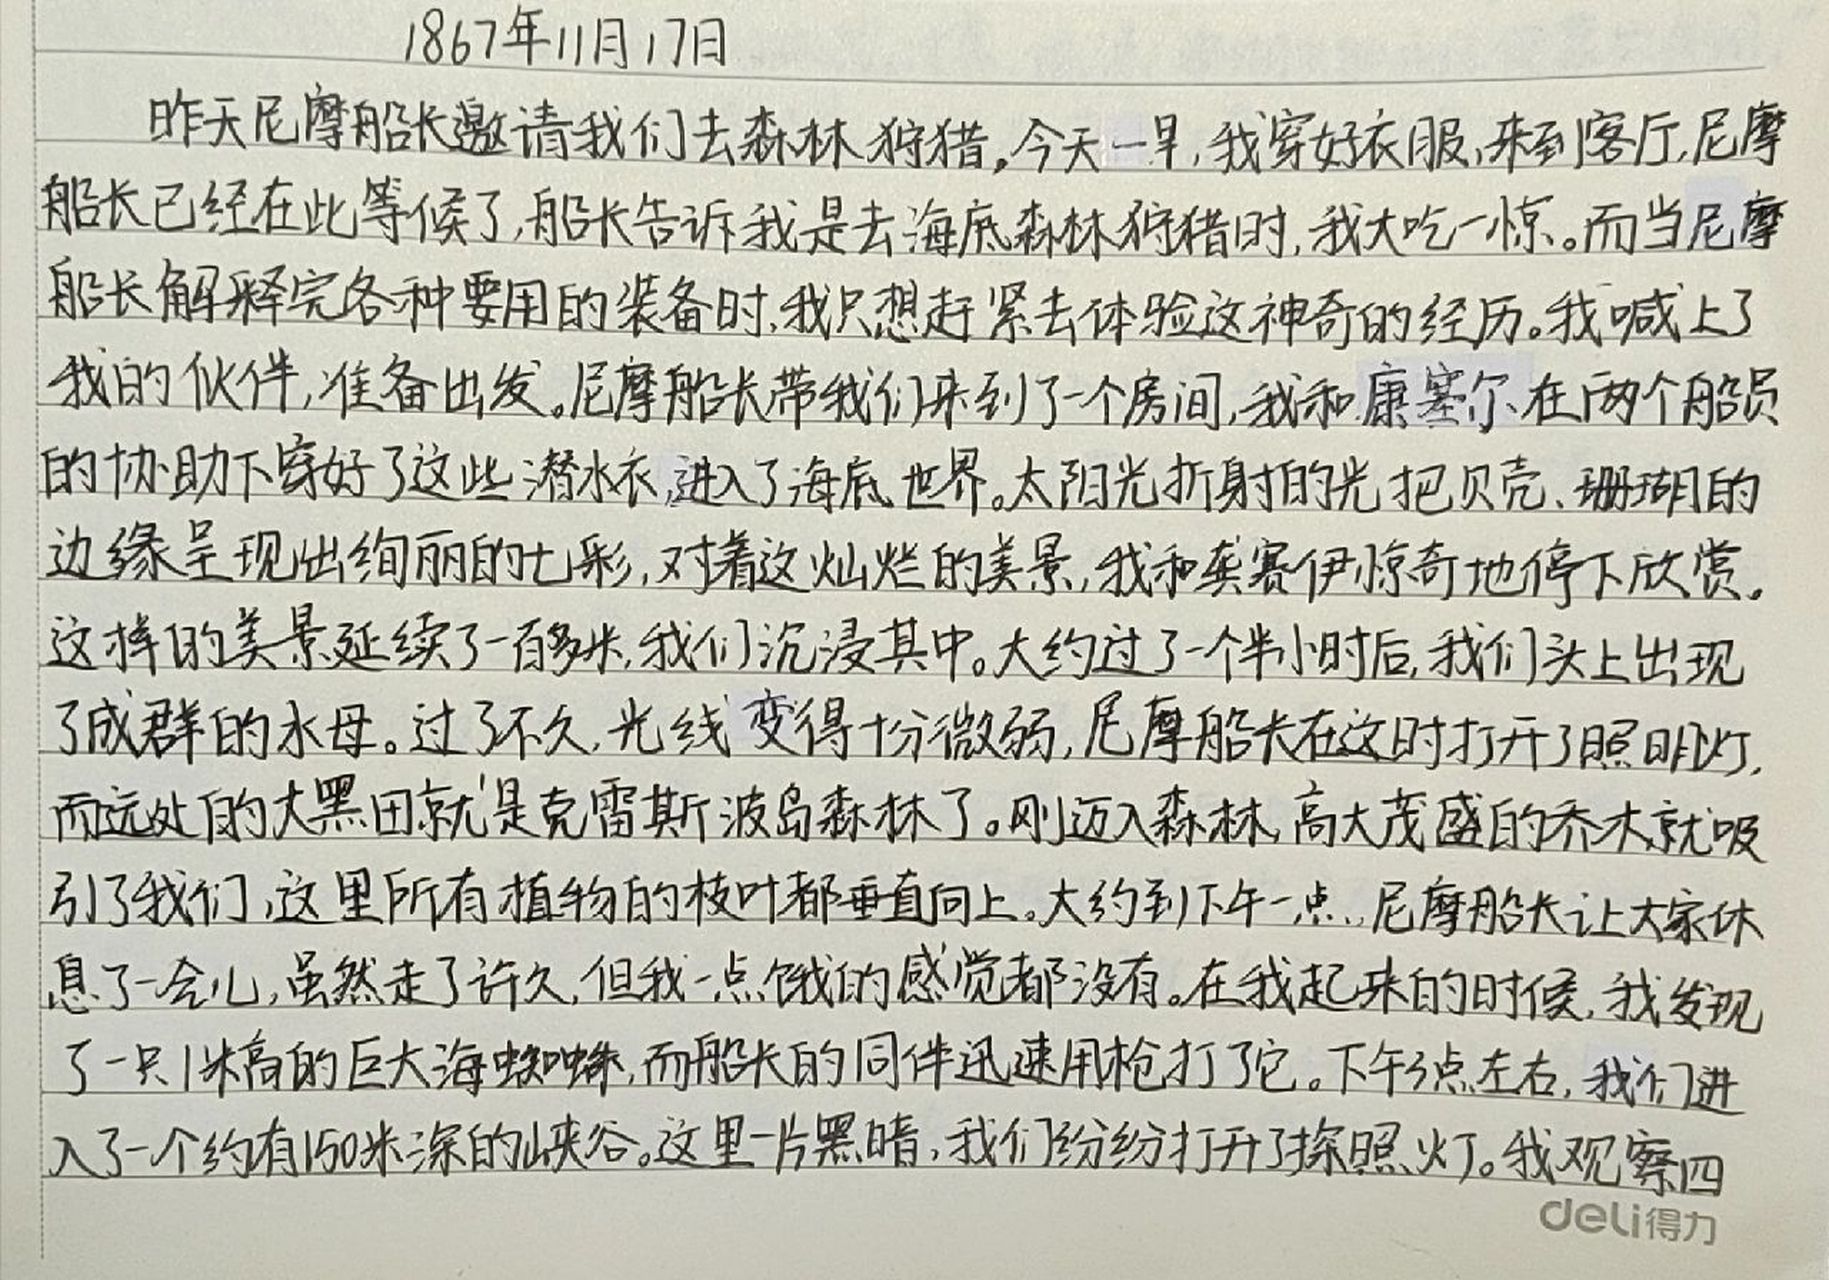 1867年11月17日
昨天尼摩船长邀请我们去森林狩猎。今天一早,我穿好衣服,来到客厅,尼摩
船长已经在此等候了,船长告诉我是去海底森林狩猎时,我大吃一惊。而当尼摩
船长解释完各种要用的装备时,我只想赶紧去体验这神奇的经历。我喊上了
我的伙伴,准备出发。尼摩船长带我们来到了一个房间,我和康塞尔在两个船员
的协助下穿好了这些潜水衣,进入了海底世界。太阳光折射的光把贝壳、珊瑚的
边缘呈现出绚丽的七彩,对着这灿烂的美景,我和龚赛伊惊奇地停下欣赏。
这样的美景延续了一百多米,我们沉浸其中。大约过了一个半小时后,我们头上出现
了成群的水母。过了不久,光线变得十分微弱,尼摩船长在这时打开了照明灯,
而远处的大黑团就是克雷斯波岛森林了。刚迈入森林,高大茂盛的乔木就吸
引了我们,这里所有植物的枝叶都垂直向上。大约到下午一点,尼摩船长让大家休
息了一会儿,虽然走了许久,但我一点饿的感觉都没有。在我起来的时候,我发现
了一只1米高的巨大海蜘蛛,而船长的同伴迅速用枪打了它。下午3点左右,我们进
入了一个约有150米深的峡谷。这里一片黑暗,我们纷纷打开了探照灯。我观察四
deli得力